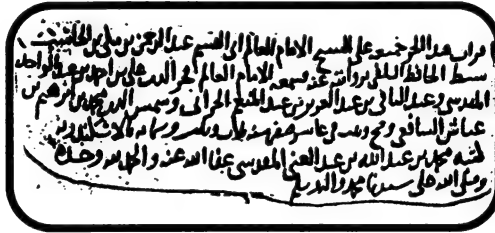 قرات هذا الجزء جميعه على الشيخ الامام العالم ابي القسم عبد الرحمن بن مكي بن الحاسب
سبط الحافظ السلفي بروايته عنه فسمعه الامام العالم فخر الدين علي بن احمد بن عبد الواحد
المقدسي وعبد الباقي بن عبد العزيز بن عبد المنعم الحراني وشمس الدين محمد بن ابرهيم بن
عباس الشافعي وصح وثبت في عاشر صفر سنة وستمائة بالاسكندرية
كتبه محمد بن عبد الله بن عبد الغني المقدسي عفا الله عنه والحمد لله وحده
وصلى الله على سيدنا محمد واله